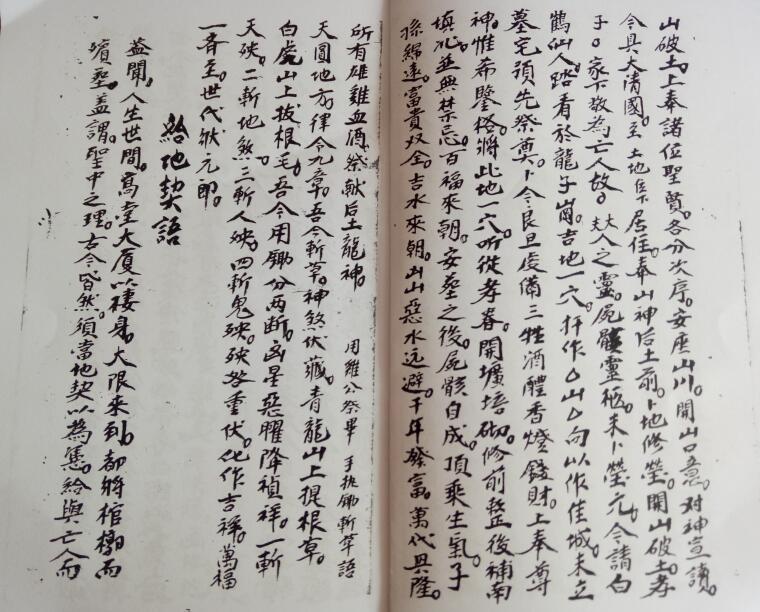 山破土。上奉諸位聖賢。各分次序。安座山川。開山口意。对神宣讀。
今具大清國。至土地住下居住。奉山神后土前。卜地修瑩。開山破土。孝
子。家下敬為亡人故。大夫人之靈。屍骸靈柩未卜瑩。元。今請白
鶴仙人。踏看於龍子崗。吉地一穴。扦作厶山厶向以作佳城。未立
墓宅。預先祭奠。卜今良旦。俊俻三牲酒醴。香燈錢財。上奉尊
神。惟希鑒格。將此地一穴。听從孝眷。開壙培砌。修前整後。補南
填北。並無禁忌。百福來朝。安塟之後。屍骸自成。頂乘生氣。子
孫綿遠。富貴双全。吉水來朝。凶山惡水远避。千年發富。萬代興隆。
所有雄雞血酒。祭献后土龍神。 用雞公祭畢 手执鋤斬草語
天圓地方。律令九章。吾今斬草。神煞伏藏。青龍山上提根草。
白虎山上拔根毛。吾今用鋤分两断。凶星惡曜降禎祥。一斬
天殃。二斬地煞。三斬人殃。四斬鬼殃。殃咎重伏。化作吉祥。萬福
一斉至。世代狀元郎。
給地契語
益聞。人生世間。寫堂大厦以棲身。大限來到。都將棺槨而
殯塟。盖謂。聖中之理。古今皆然。須當地契以為憑。給與亡人而